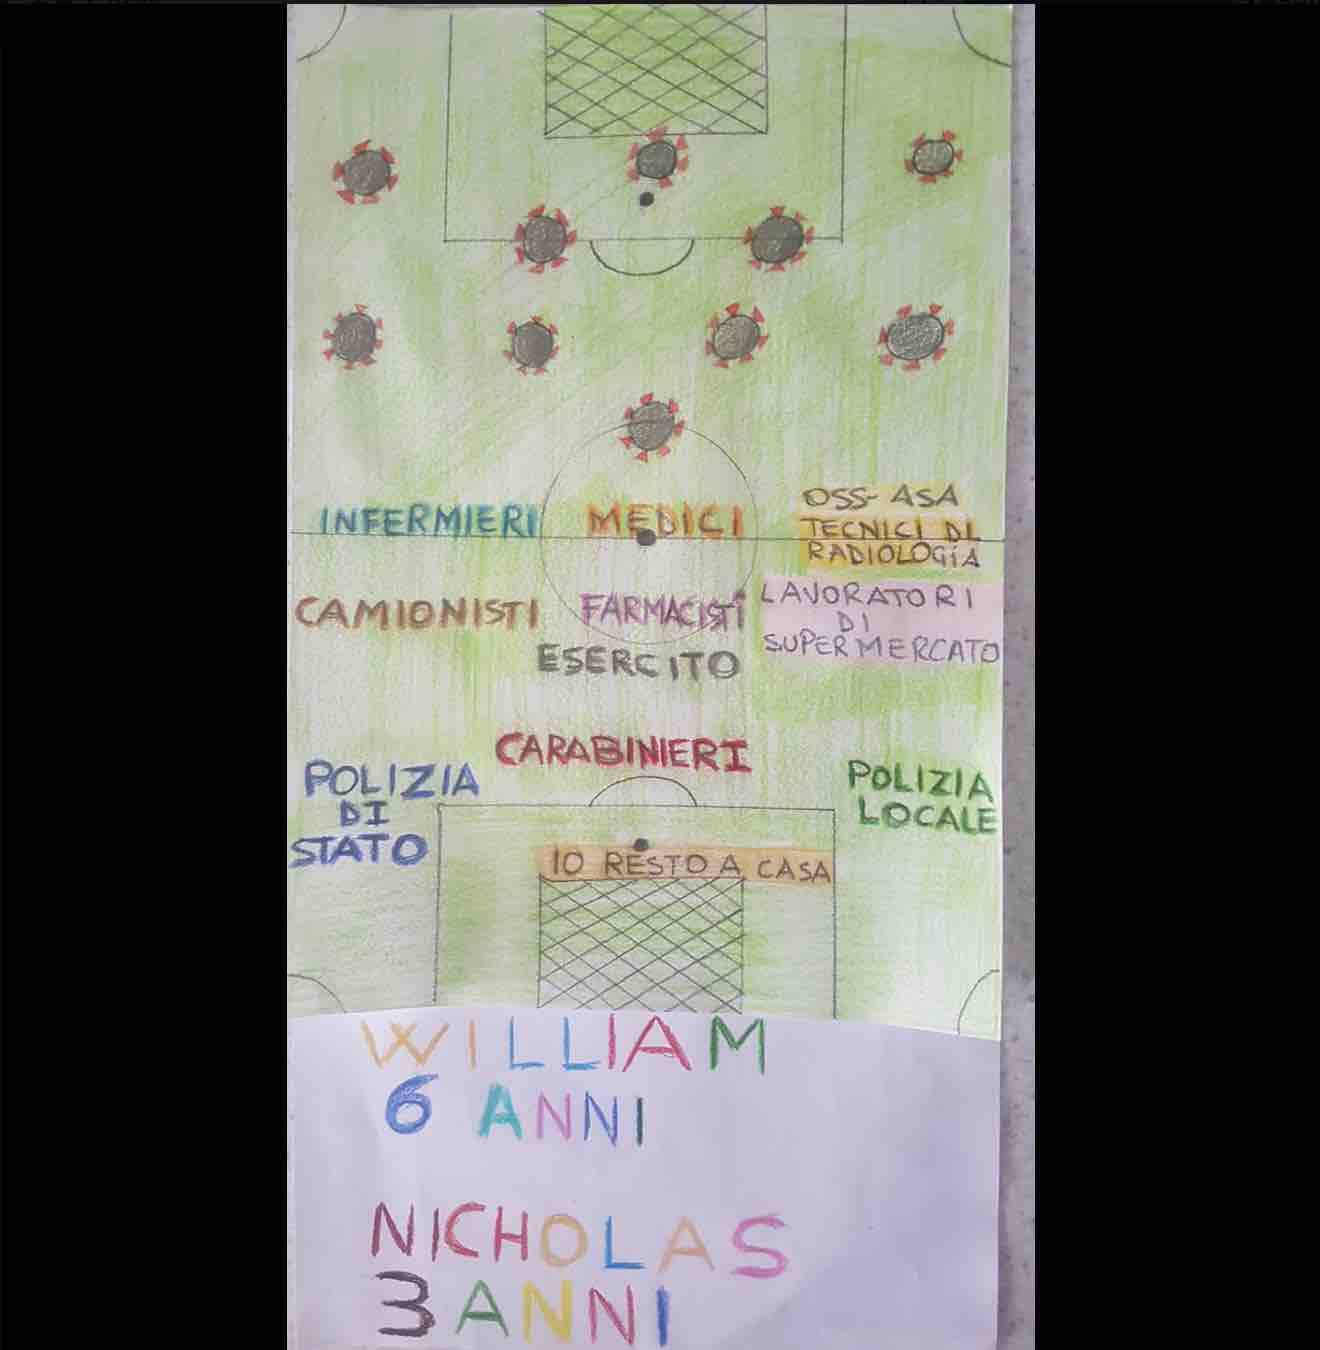 INFERMIERI
MEDICI
OSS-ASA
TECNICI DI
RADIOLOGIA
CAMIONISTI
FARMACISTI
LAVORATORI
DI
SUPERMERCATO
ESERCITO
CARABINIERI
POLIZIA
DI
STATO
POLIZIA
LOCALE
IO RESTO A CASA
WILLIAM
6 ANNI
NICHOLAS
3 ANNI